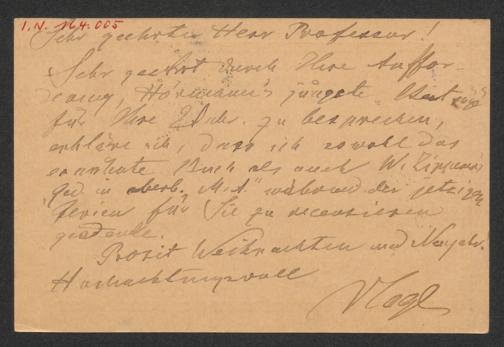 I.N. 164.005
Sehr geehrter Herr Professor!
Sehr geehrt durch Ihre Auffor-
derung, Hörmann's jüngste
für Ihre Ztschr. zu besprechen,
erkläre ich, dass ich sowohl das
genannte Buch als auch W.
"M. A." während der jetzigen
Ferien für Sie zu recensieren
gedenke.
Prosit Weihnachten und Neujahr.
Hochachtungsvoll
Vogl